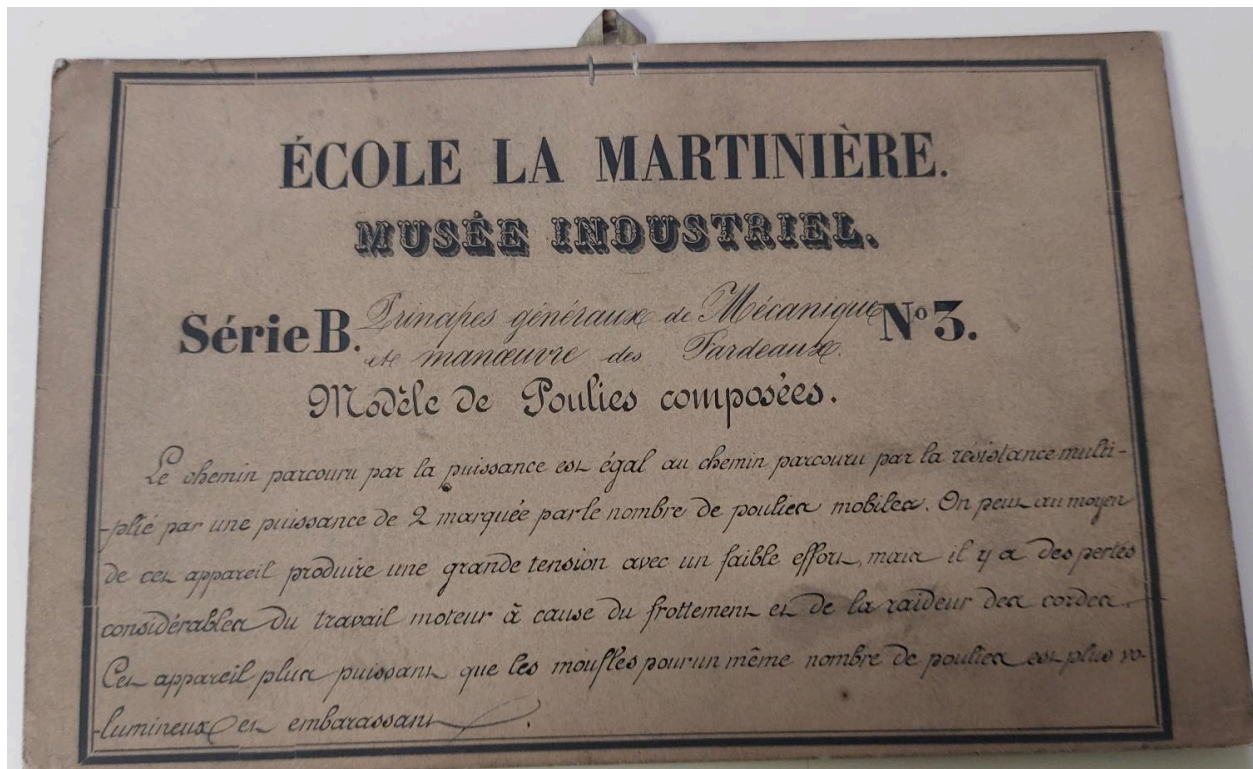 ÉCOLE LA MARTINIÈRE.
MUSÉE INDUSTRIEL.
Série B. Principes généraux de Mécanique N° 3.
et manœuvre des Fardeaux.
Modèle de Poulies composées.
Le chemin parcouru par la puissance est égal au chemin parcouru par la résistance multi-
-plié par une puissance de 2 marquée par le nombre de poulies mobiles. On peut au moyen
de cet appareil produire une grande tension avec un faible effort, mais il y a des pertes
considérables du travail moteur à cause du frottement et de la raideur des cordes.
Cet appareil plus puissant que les moufles pour un même nombre de poulies est plus vo-
-lumineux et embarassant.